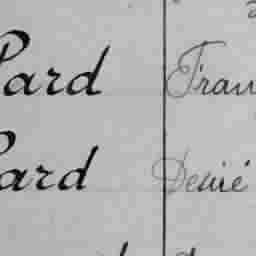 Pard Fran
Pard Denié